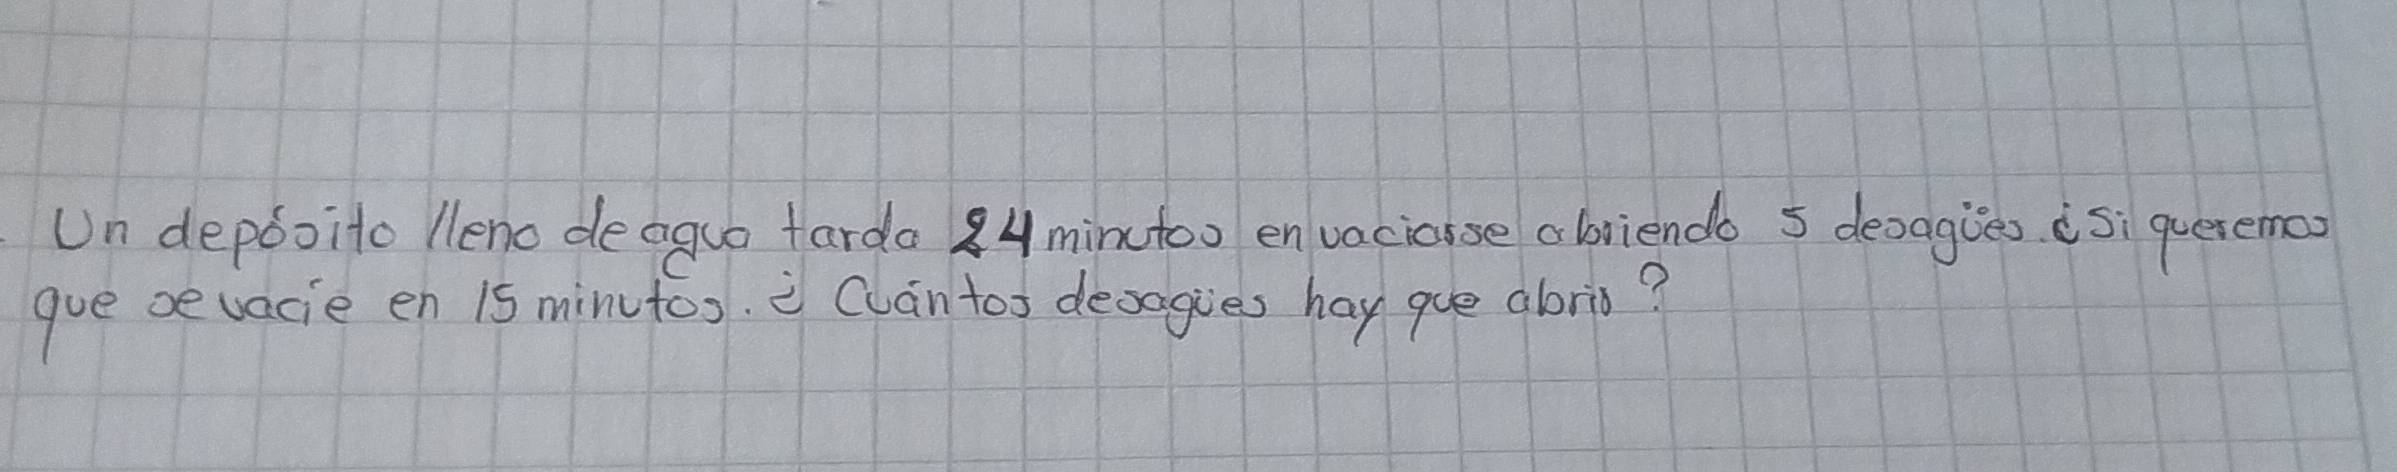 Un depósito lleno de agua tarda 24 minutos en vaciarse abriendo 5 desagües. ¿Si queremos
que se vacíe en 15 minutos. ¿Cuántos desagües hay que abrir?